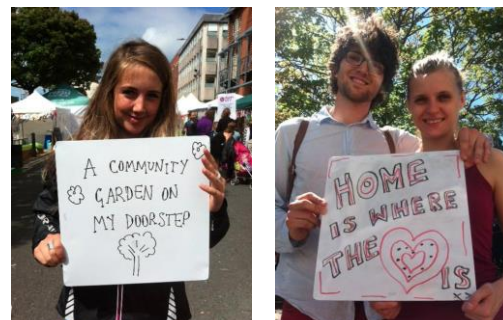 A COMMUNITY
GARDEN ON
MY DOORSTEP
HOME
IS WHERE
THE
IS